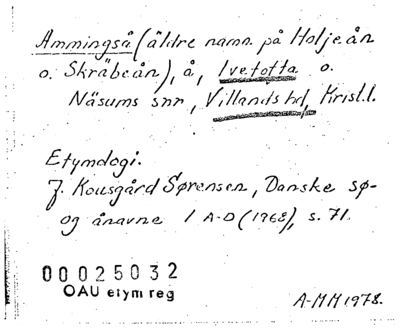 Ammingså (äldre namn på Holjeån
o. Skräbeån), å, Ivetofta o.
Näsums snr, Villands hd, Krist.l.
Etymologi.
J. Kousgård Sørensen, Danske sø-
og ånavne 1 A-D (1968), s. 71.
00025032
OAU etym reg
A-MM 1978.